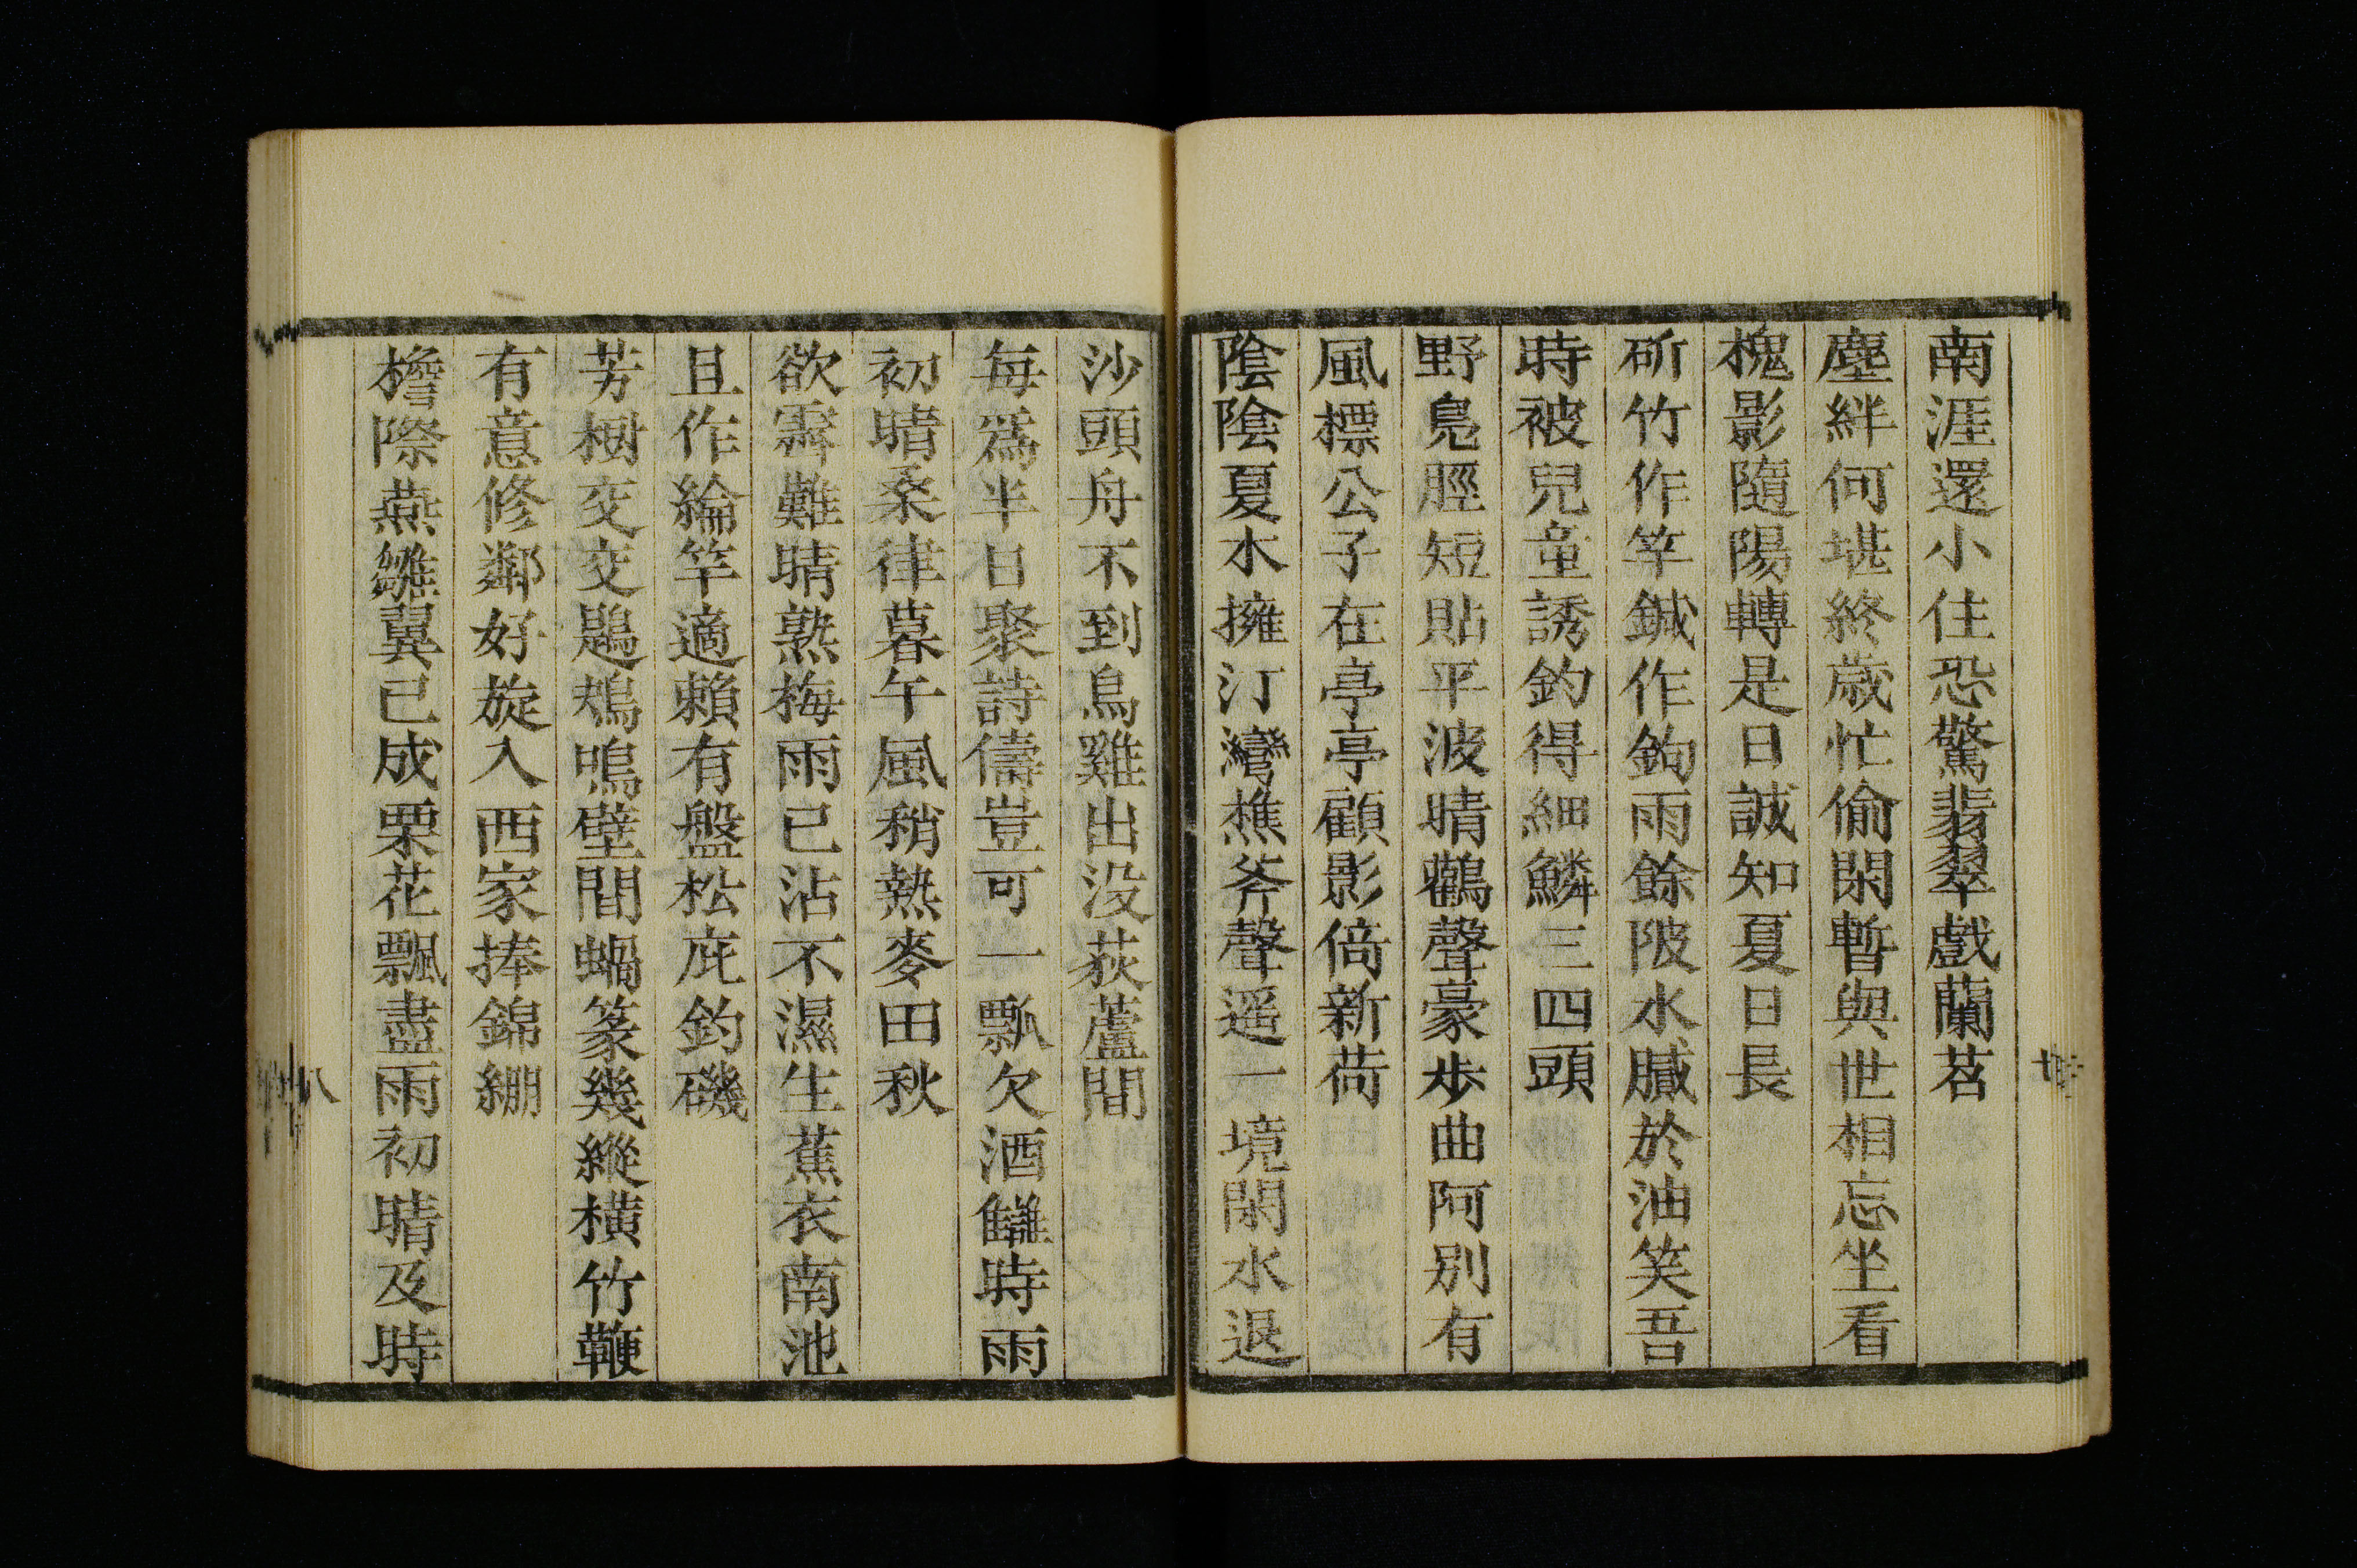 南涯還小住恐驚翡翠戲蘭苕
塵絆何堪終歲忙偷閑暫與世相忘坐看
槐影隨陽轉是日誠知夏日長
斫竹作竿鍼作鉤雨餘陂水膩於油笑吾
時被兒童誘釣得細鱗三四頭
野鳧脛短貼平波晴鸛聲豪步曲阿別有
風標公子在亭亭顧影倚新荷
陰陰夏木擁汀灣樵斧聲遥一境閑水退
沙頭舟不到鳥雞出没荻蘆間
每爲半日聚詩儔豈可一瓢欠酒讎時雨
初晴桑律暮午風稍熱麥田秋
欲霽難晴熟梅雨已沾不濕生蕉衣南池
且作綸竿適賴有盤松庇釣磯
芳樹交交鶗鴂鳴壁間蝸篆幾縱橫竹鞭
有意修鄰好旋入西家捧錦綳
檐際燕雛翼已成栗花飄盡雨初晴及時
八